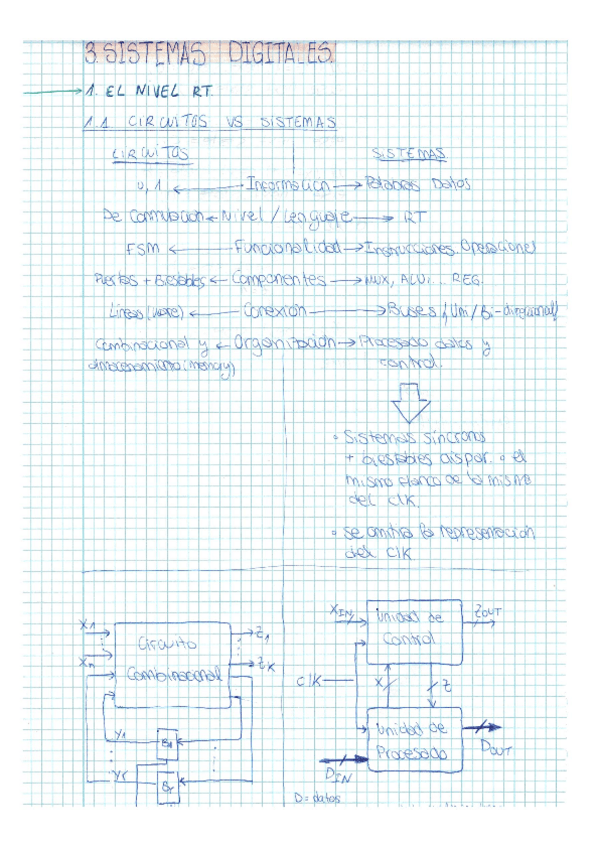 3. SISTEMAS DIGITALES.
1. EL NIVEL RT.
1.1 CIRCUITOS VS SISTEMAS
CIRCUITOS
SISTEMAS
0, 1 ← Información → Palabras Datos
De Conmutación ← Nivel / Lenguaje → RT
FSM ← Funcionalidad → Instrucciones. Operaciones
Puertas + Biestables ← Componentes → MUX, ALU, ... REG.
Líneas ← Conexión → Buses / Uni / Bi-direccional /
Combinacional y ← Organización → Procesado datos y
almacenamiento (memory) control.
◦ Sistemas síncronos
+ biestables dispar. el
mismo flanco de la misma
del CLK.
◦ se omitirá la representación
del CLK.
X1
Xn
Circuito
Combinacional
Z1
ZK
Y1
Yr
B1
Br
XIN
Unidad de
Control
ZOUT
CLK
X
Z
Unidad de
Procesado
DIN
DOUT
D = datos